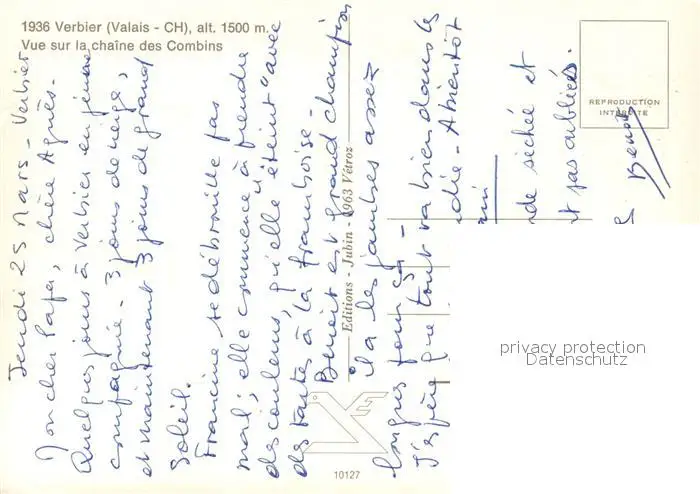 1936 Verbier (Valais - CH), alt. 1500 m.
Vue sur la chaîne des Combins
Jeudi 25 Mars - Verbier
Mon cher Papa, chère Agnès.
Quelques jours à Verbier en jeune
compagnie. 3 jours de neige,
et maintenant 3 jours de grand
soleil.
Francine se débrouille pas
mal, elle commence à prendre
des couleurs, qu'elle "éteint" avec
des tartes à la framboise -
Benoit est grand champion
il a les jambes assez
longues pour ça -
J'espère que tout va bien dans le
- A bientôt
de séchée et
pas oubliées.
Benoit
Editions - Jubin - 1963 Vétroz
REPRODUCTION
INTERDITE
10127
privacy protection
Datenschutz